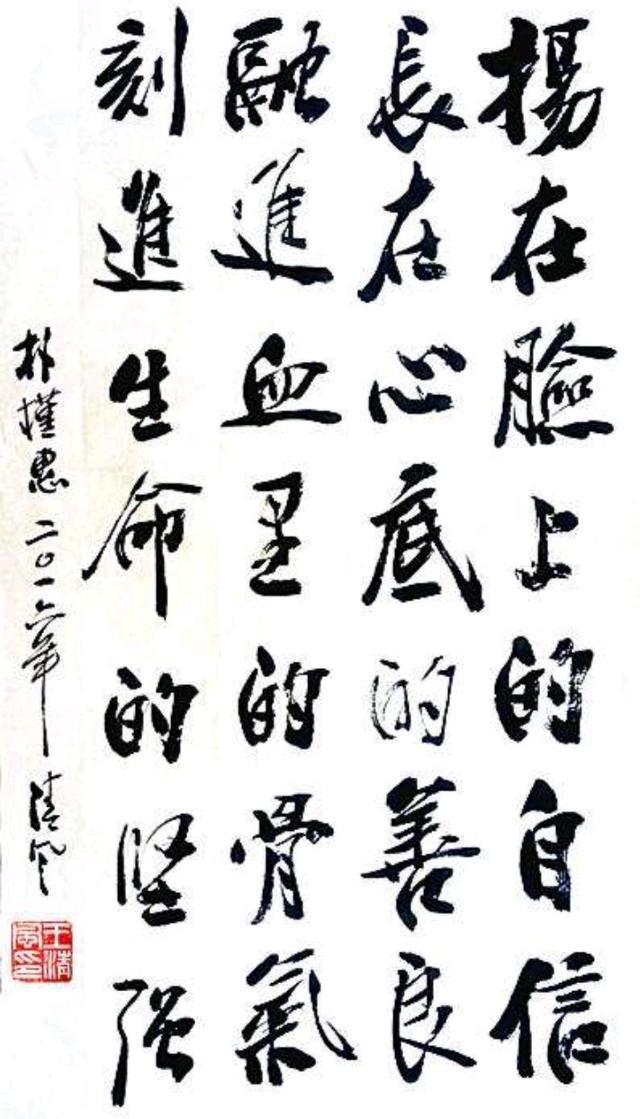 揚在臉上的自信
長在心底的善良
融進血里的骨氣
刻進生命的堅强
朴槿惠二〇一六年清风
王清風印